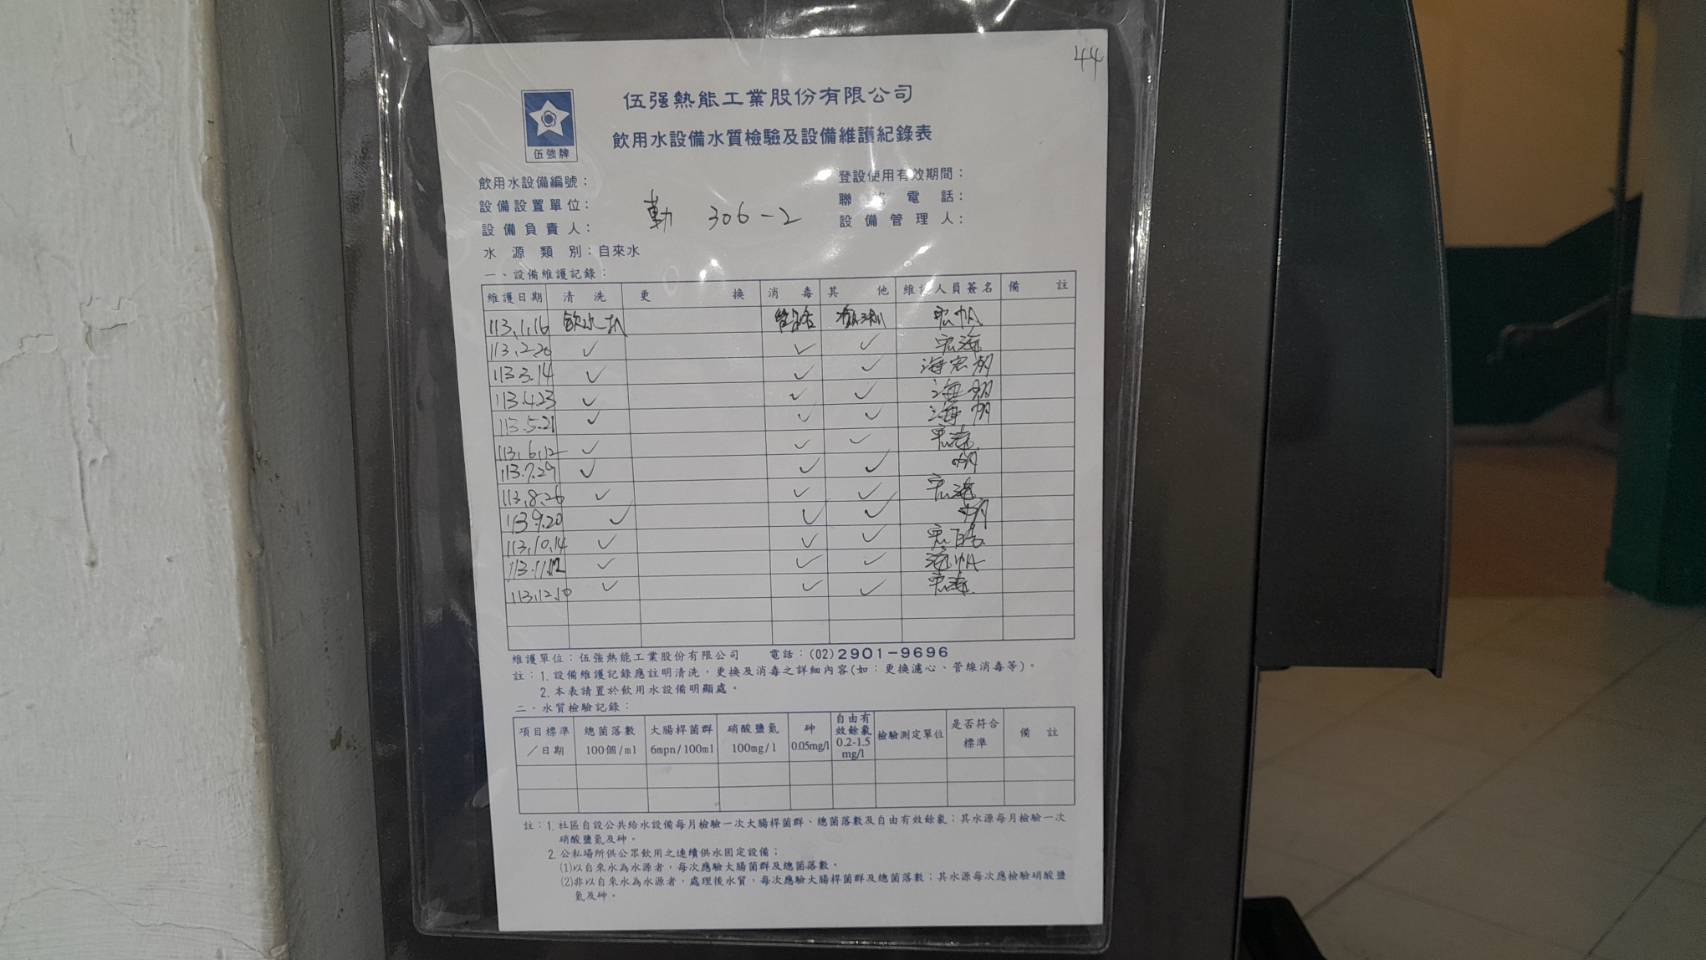 44
伍強熱能工業股份有限公司
飲用水設備水質檢驗及設備維護紀錄表
伍強牌
飲用水設備編號：
登設使用有效期間：
設備設置單位：
聯 電話：
勤 306-2
設備負責人：
設備管理人：
水源類別：自來水
一、設備維護記錄：
維護日期 清洗 更換 消毒 其他 維 人員簽名 備註
113.1.16 飲水
113.2.26 ✓ ✓ ✓ 宏海
113 3.14 ✓ ✓ ✓
113.4.23 ✓ ✓ ✓
113.5.21 ✓ ✓ ✓
113.6.12 ✓ ✓ ✓
113.7.29 ✓ ✓ ✓
113.8.26 ✓ ✓ ✓
113 9.20 ✓ ✓ ✓
113.10.14 ✓ ✓ ✓
113.11.12 ✓ ✓ ✓
113.12.10 ✓ ✓ ✓
維護單位：伍強熱能工業股份有限公司 電話：(02)2901-9696
註：1.設備維護記錄應註明清洗，更換及消毒之詳細內容(如：更換濾心、管線消毒等)。
2.本表請置於飲用水設備明顯處。
二、水質檢驗記錄：
項目標準／日期 總菌落數 100個/ml 大腸桿菌群 6mpn/100ml 硝酸鹽氮 100mg/l 砷 0.05mg/l 自由有效餘氯 0.2-1.5 mg/l 檢驗測定單位 是否符合標準 備註
註：1.社區自設公共給水設備每月檢驗一次大腸桿菌群、總菌落數及自由有效餘氯；其水源每月檢驗一次
硝酸鹽氮及砷。
2.公私場所供公眾飲用之連續供水固定設備；
(1)以自來水為水源者，每次應驗大腸菌群及總菌落數。
(2)非以自來水為水源者，處理後水質，每次應驗大腸桿菌群及總菌落數；其水源每次應檢驗硝酸鹽
氮及砷。